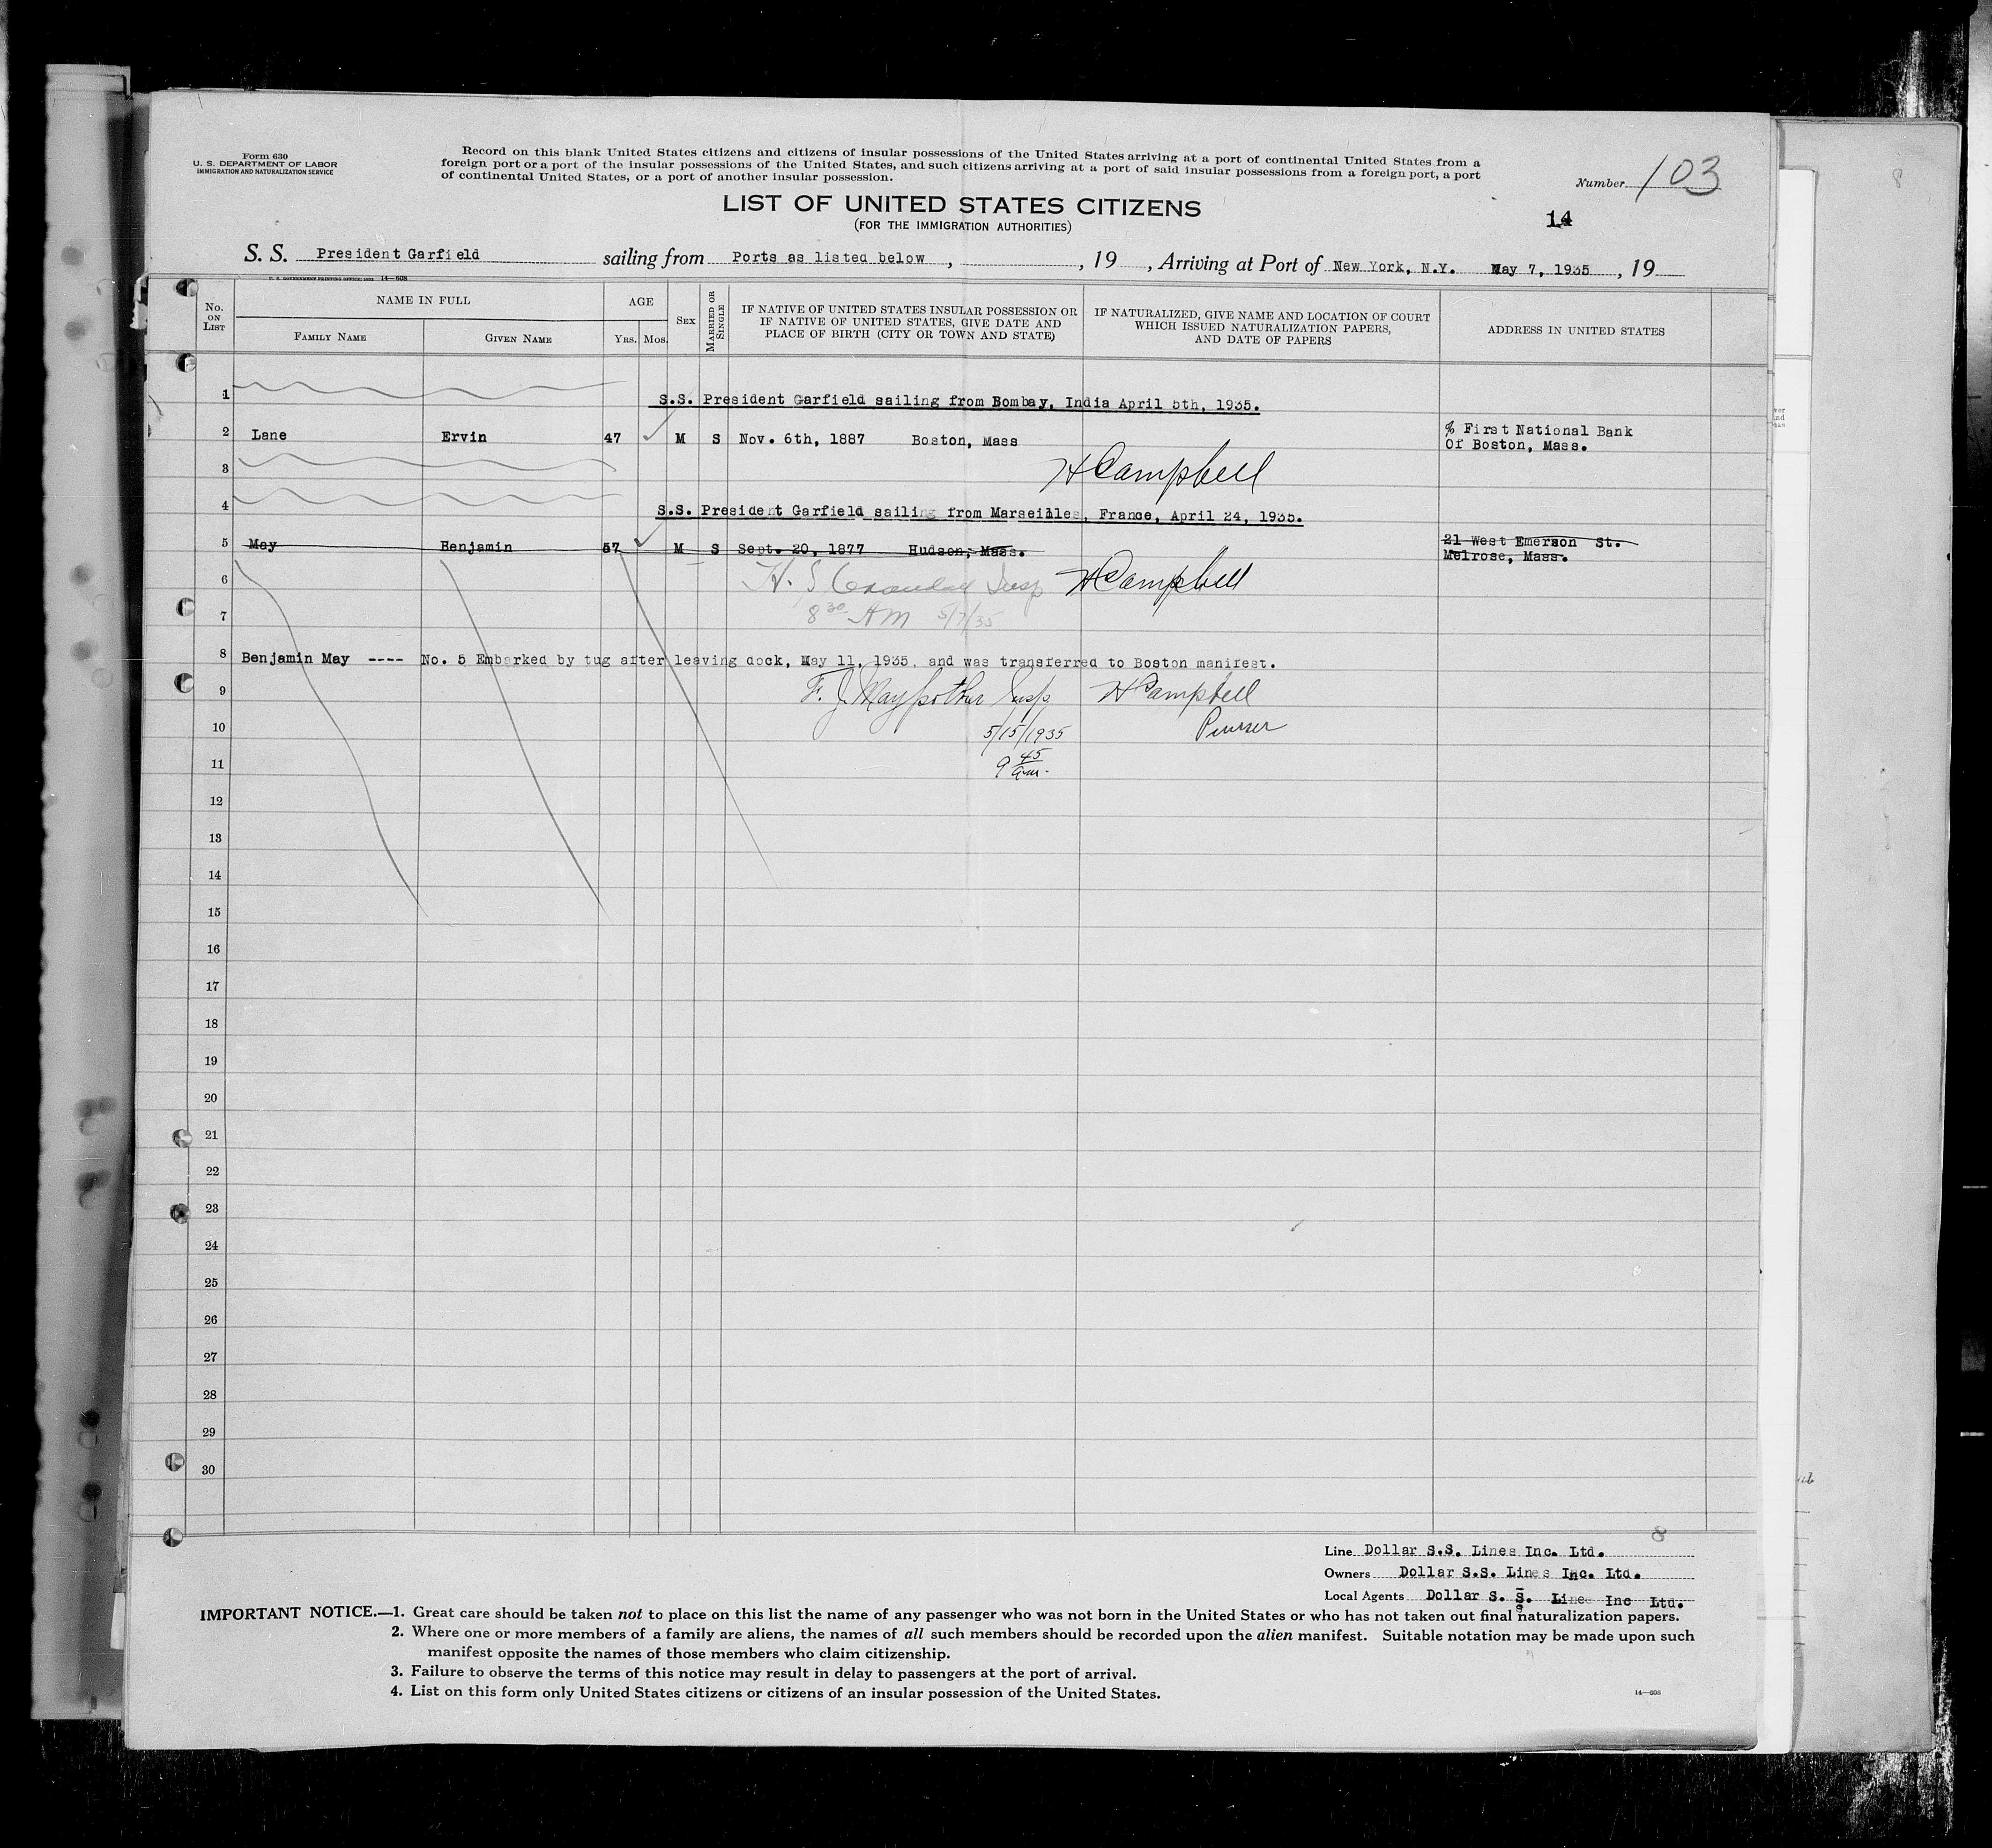 Form 630
U. S. DEPARTMENT OF LABOR
IMMIGRATION AND NATURALIZATION SERVICE
Record on this blank United States citizens and citizens of insular possessions of the United States arriving at a port of continental United States from a
foreign port or a port of the insular possessions of the United States, and such citizens arriving at a port of said insular possessions from a foreign port, a port
of continental United States, or a port of another insular possession.
Number 103
LIST OF UNITED STATES CITIZENS
(FOR THE IMMIGRATION AUTHORITIES)
14
S. S. President Garfield sailing from Ports as listed below , , 19 , Arriving at Port of New York, N.Y. May 7, 1935 , 19
No. ON LIST
NAME IN FULL
FAMILY NAME
GIVEN NAME
AGE
YRS. MOS.
SEX
MARRIED OR SINGLE
IF NATIVE OF UNITED STATES INSULAR POSSESSION OR
IF NATIVE OF UNITED STATES, GIVE DATE AND
PLACE OF BIRTH (CITY OR TOWN AND STATE)
IF NATURALIZED, GIVE NAME AND LOCATION OF COURT
WHICH ISSUED NATURALIZATION PAPERS,
AND DATE OF PAPERS
ADDRESS IN UNITED STATES
1 S.S. President Garfield sailing from Bombay, India April 5th, 1935.
2 Lane Ervin 47 M S Nov. 6th, 1887 Boston, Mass % First National Bank
Of Boston, Mass.
3 H Campbell
4 S.S. President Garfield sailing from Marseilles, France, April 24, 1935.
5 May Benjamin 57 M S Sept. 20, 1877 Hudson, Mass. 21 West Emerson St.
Melrose, Mass.
6 H. S. Insp H Campbell
7 8 30 AM 5/7/35
8 Benjamin May ---- No. 5 Embarked by tug after leaving dock, May 11, 1935, and was transferred to Boston manifest.
9 F. J. Maypother Insp H Campbell
10 5/15/1935 Purser
11 9 45 am.
12
13
14
15
16
17
18
19
20
21
22
23
24
25
26
27
28
29
30
8
Line Dollar S.S. Lines Inc. Ltd.
Owners Dollar S.S. Lines Inc. Ltd.
Local Agents Dollar S. S. Lines Inc Ltd.
IMPORTANT NOTICE.—1. Great care should be taken not to place on this list the name of any passenger who was not born in the United States or who has not taken out final naturalization papers.
2. Where one or more members of a family are aliens, the names of all such members should be recorded upon the alien manifest. Suitable notation may be made upon such
manifest opposite the names of those members who claim citizenship.
3. Failure to observe the terms of this notice may result in delay to passengers at the port of arrival.
4. List on this form only United States citizens or citizens of an insular possession of the United States.
14—608